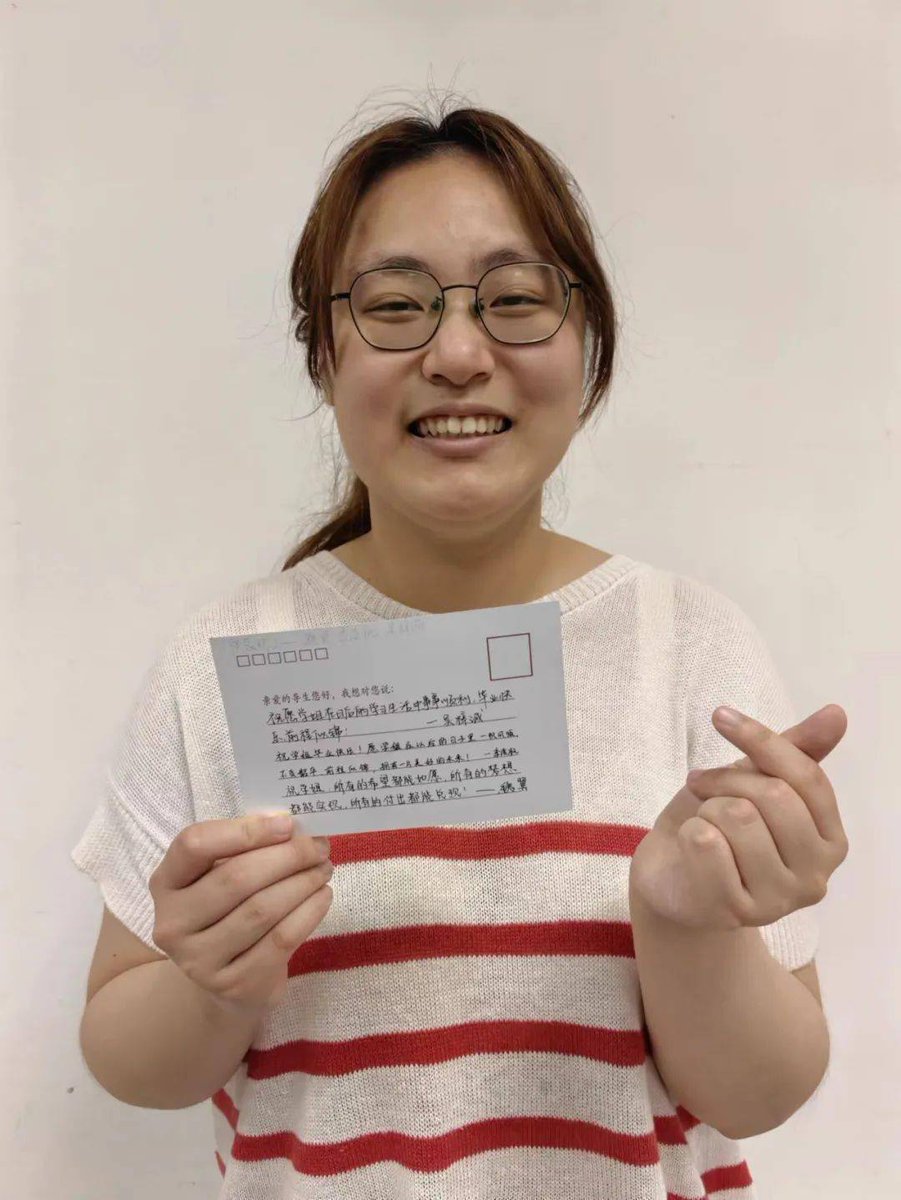 亲爱的学生您好，我想对您说：
祝愿学姐在日后的学习生活中事事顺利，毕业快
乐，前程似锦！ ——吴豫诚
祝学姐毕业快乐！愿学姐在以后的日子里一帆风顺，
不负韶华，前程似锦，拥有一片美好的未来！ —李
祝学姐，所有的希望都能如愿，所有的梦想
都能实现，所有的付出都能兑现！——魏翼